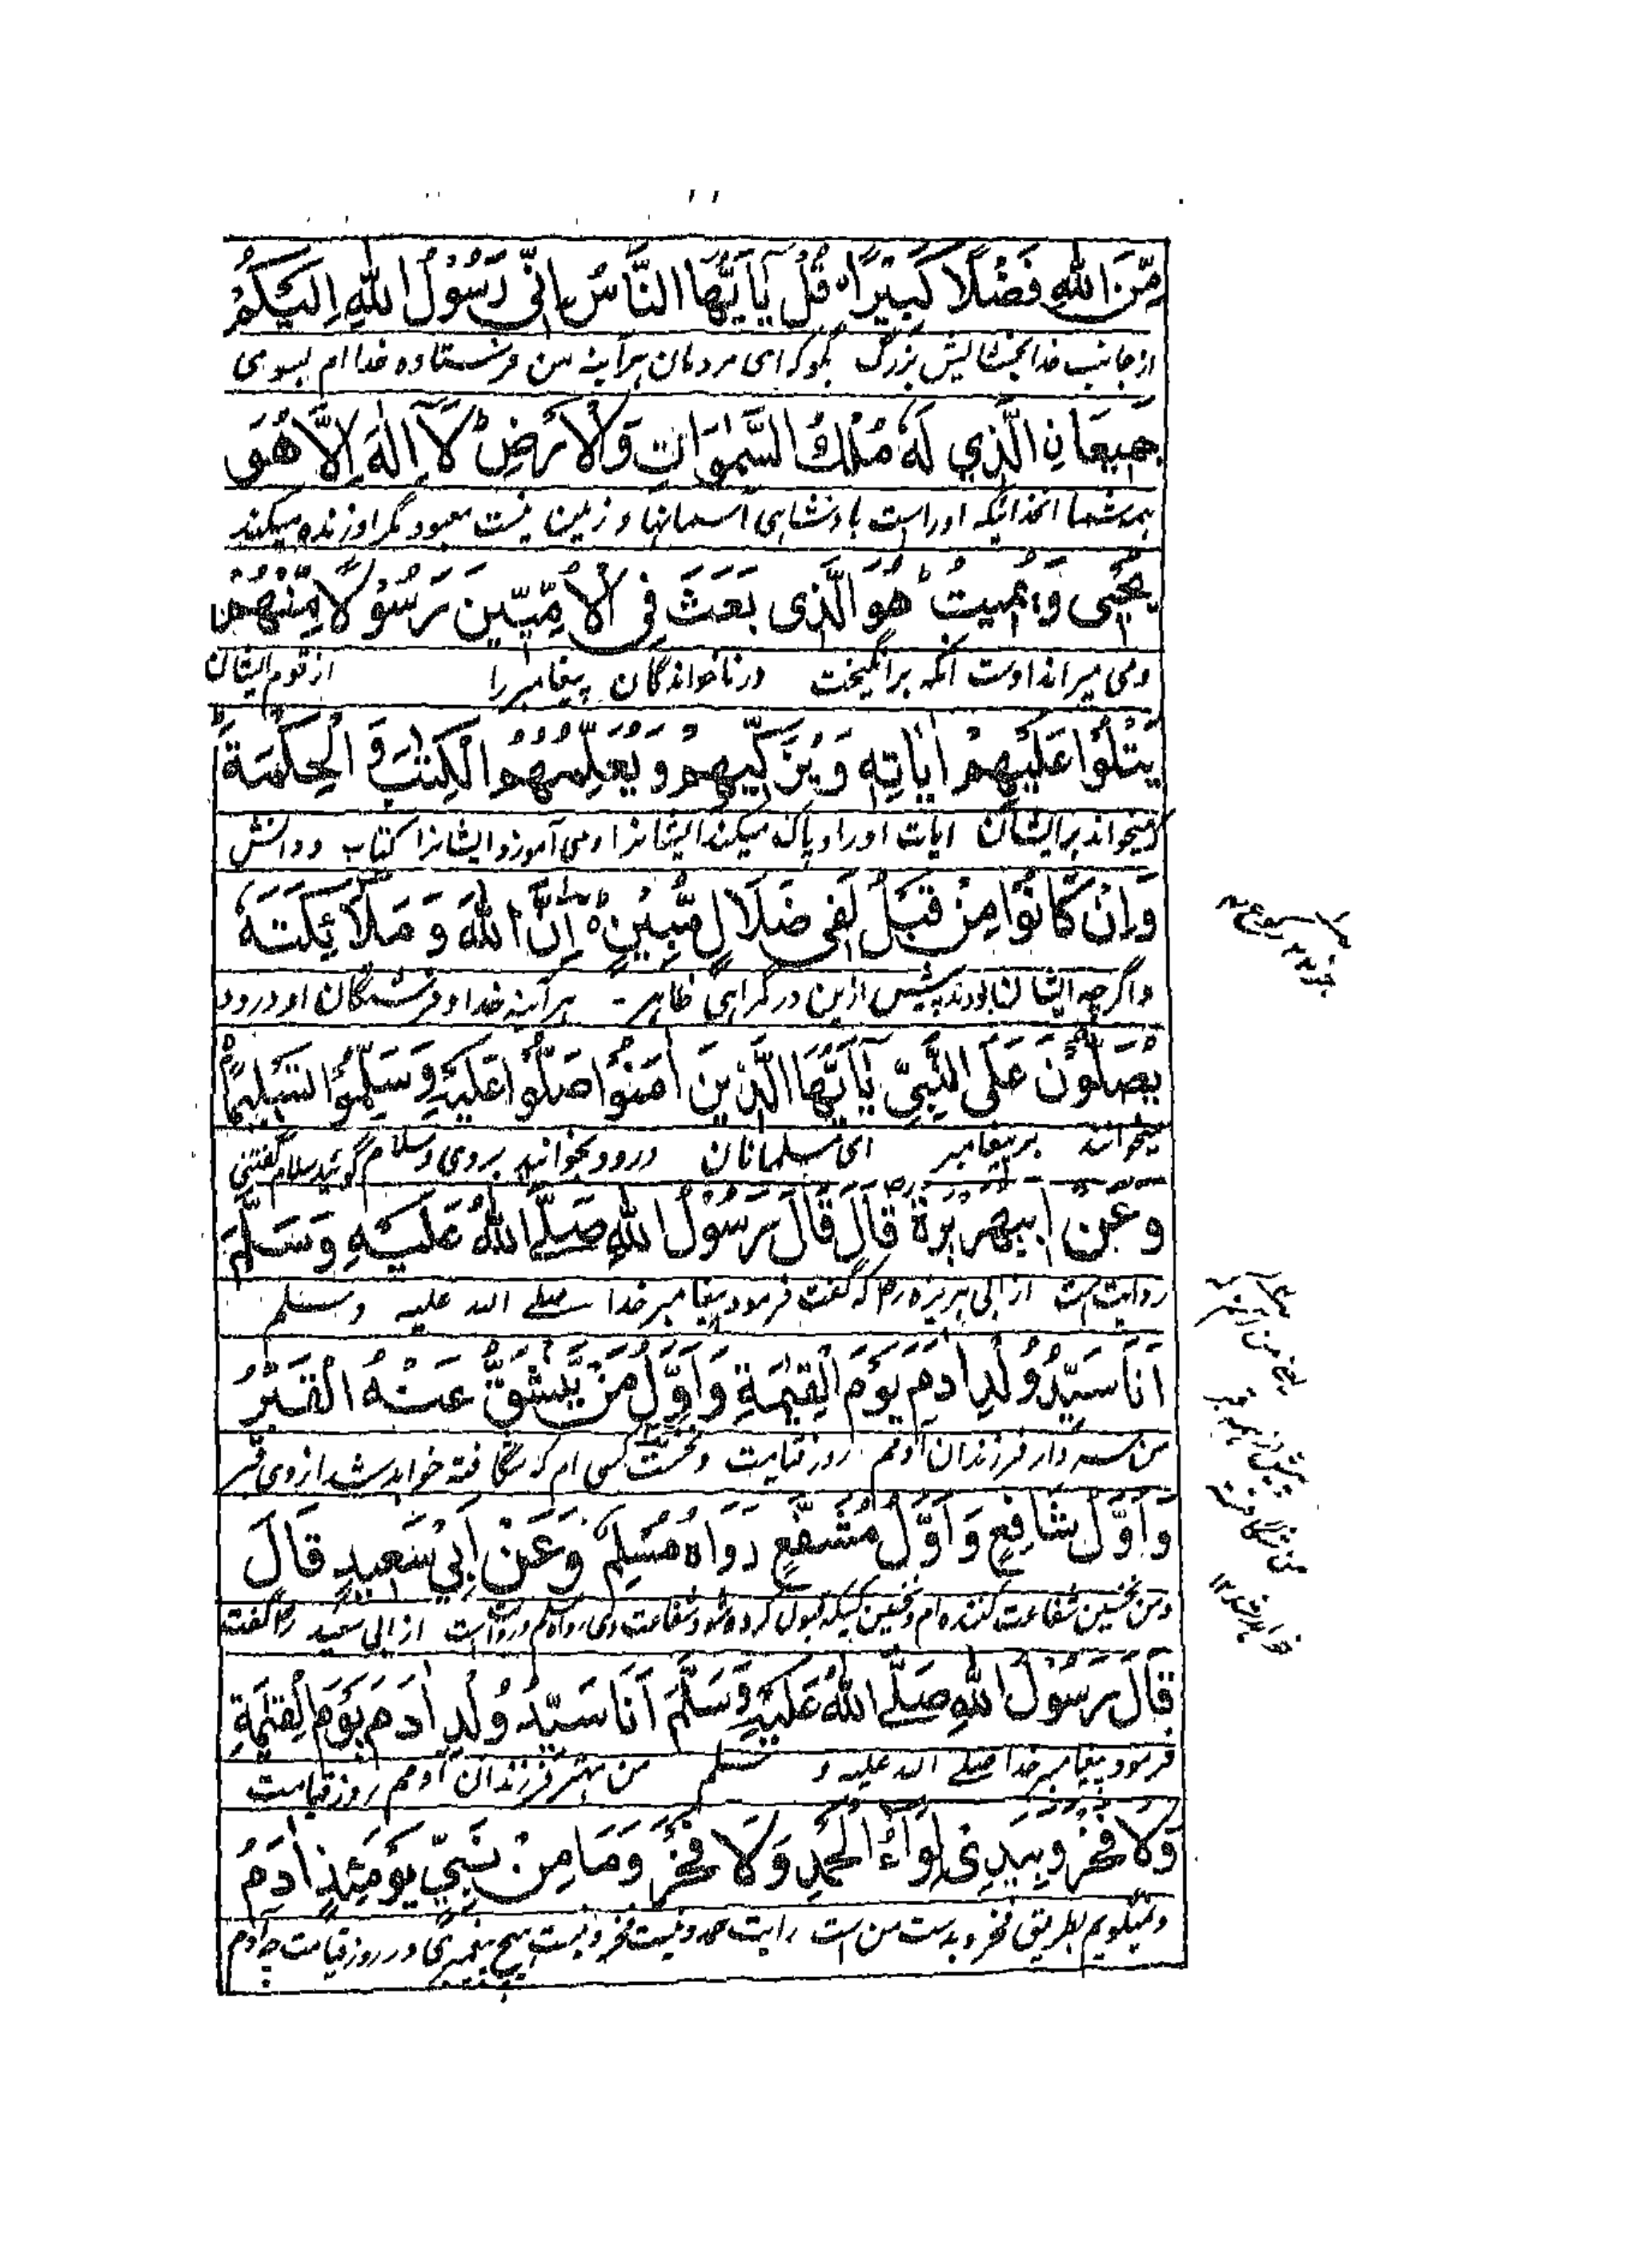 مِّنَ اللّٰهِ فَضْلًا كَبِيْرًا ه قُلْ يٰٓاَيُّهَا النَّاسُ اِنِّي رَسُوْلُ اللّٰهِ اِلَيْكُمْ
از جانب خدا بخشایش بزرگ بگو که ای مردمان هرآینه من فرستاده خدا ام بسوی
جَمِيْعَا نِ الَّذِي لَهٗ مُلْكُ السَّمٰوَاتِ وَالْاَرْضِ ط لَآ اِلٰهَ اِلَّا هُوَ
همه شما آنخدائیکه اوراست بادشاهی آسمانها و زمین نیست معبود مگر او زنده میکند
يُحْيِي وَيُمِيْتُ ط هُوَ الَّذِی بَعَثَ فِی الْاُمِّيّٖنَ رَسُوْلًا مِّنْهُمْ
ومی میراند اوست آنکه برانگیخت در ناخواندگان پیغامبر را از قوم ایشان
يَتْلُوْا عَلَيْهِمْ اٰيَاتِهٖ وَيُزَكِّيْهِمْ وَيُعَلِّمُهُمُ الْكِتٰبَ وَ الْحِكْمَةَ
میخواند بر ایشان ایات اورا و پاک میکند ایشانرا ومی آموزد ایشانرا کتاب و دانش
وَاِنْ كَانُوْا مِنْ قَبْلُ لَفِی ضَلَالٍ مُّبِيْنٍ ه اِنَّ اللّٰهَ وَ مَلَائِكَتَهٗ
واگرچه ایشان بودند پیش ازین در گمراهی ظاهر هرآینه خدا و فرشتگان او درود
يُصَلُّوْنَ عَلَی النَّبِيِّ يٰٓاَيُّهَا الَّذِيْنَ اٰمَنُوْا صَلُّوْا عَلَيْهِ وَسَلِّمُوْا تَسْلِيْمًا
میخوانند بر پیغامبر ای مسلمانان درود بخوانید بروی و سلام گوئید سلام گفتنی
وَعَنْ اَبِيْهُرَيْرَةَ رض قَالَ قَالَ رَسُوْلُ اللّٰهِ صَلَّے اللّٰهُ عَلَيْهِ وَسَلَّمَ
روایت است از ابی هریره رض که گفت فرمود پیغامبر خدا صلے الله علیه وسلم
اَنَا سَيِّدُ وُلْدِ اٰدَمَ يَوْمَ الْقِيٰمَةِ وَاَوَّلُ مَنْ يَّنْشَقُّ عَنْهُ الْقَبْرُ
من سردار فرزندان آدمم روز قیامت و نخست کسی ام که شگافته خواهد شد از وی قبر
وَاَوَّلُ شَافِعٍ وَاَوَّلُ مُشَفَّعٍ رَوَاهُ مُسْلِمٌ وَعَنْ اَبِيْ سَعِيْدٍ قَالَ
ومن نخستین شفاعت کننده ام و نخستین کسیکه قبول کرده شود شفاعت وی رواه مسلم روایت است از ابی سعید رض گفت
قَالَ رَسُوْلُ اللّٰهِ صَلَّے اللّٰهُ عَلَيْهِ وَسَلَّمَ اَنَا سَيِّدُ وُلْدِ اٰدَمَ يَوْمَ الْقِيٰمَةِ
فرمود پیغامبر خدا صلے الله علیه و سلم من مهتر فرزندان آدمم روز قیامت
وَلَا فَخْرَ وَبِيَدِی لِوَاءُ الْحَمْدِ وَلَا فَخْرَ وَمَا مِنْ نَبِيٍّ يَوْمَئِذٍ اٰدَمُ
و نمیگویم بطریق فخر و بدست من است رایت حمد و نیست فخر و نیست هیچ پیغمبری در روز قیامت چه آدم